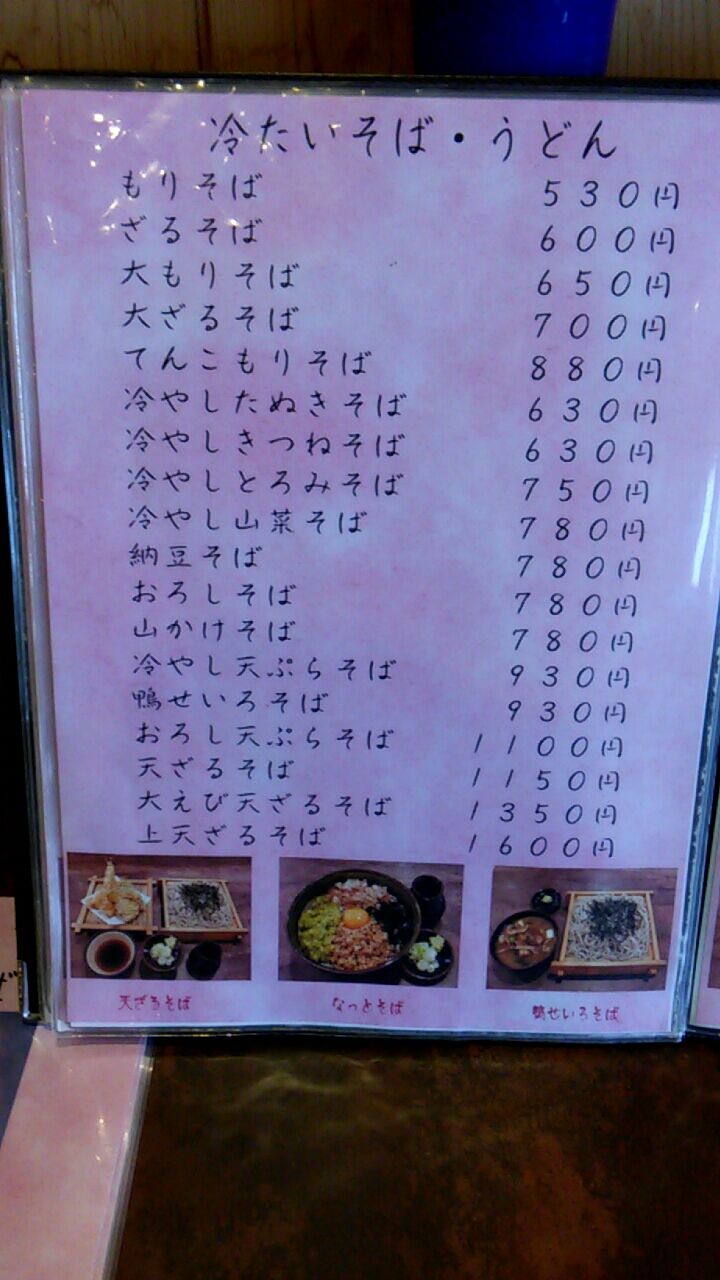 冷たいそば・うどん
もりそば 530円
ざるそば 600円
大もりそば 650円
大ざるそば 700円
てんこもりそば 880円
冷やしたぬきそば 630円
冷やしきつねそば 630円
冷やしとろみそば 750円
冷やし山菜そば 780円
納豆そば 780円
おろしそば 780円
山かけそば 780円
冷やし天ぷらそば 930円
鴨せいろそば 930円
おろし天ぷらそば 1100円
天ざるそば 1150円
大えび天ざるそば 1350円
上天ざるそば 1600円
天ざるそば なっとそば 鴨せいろそば